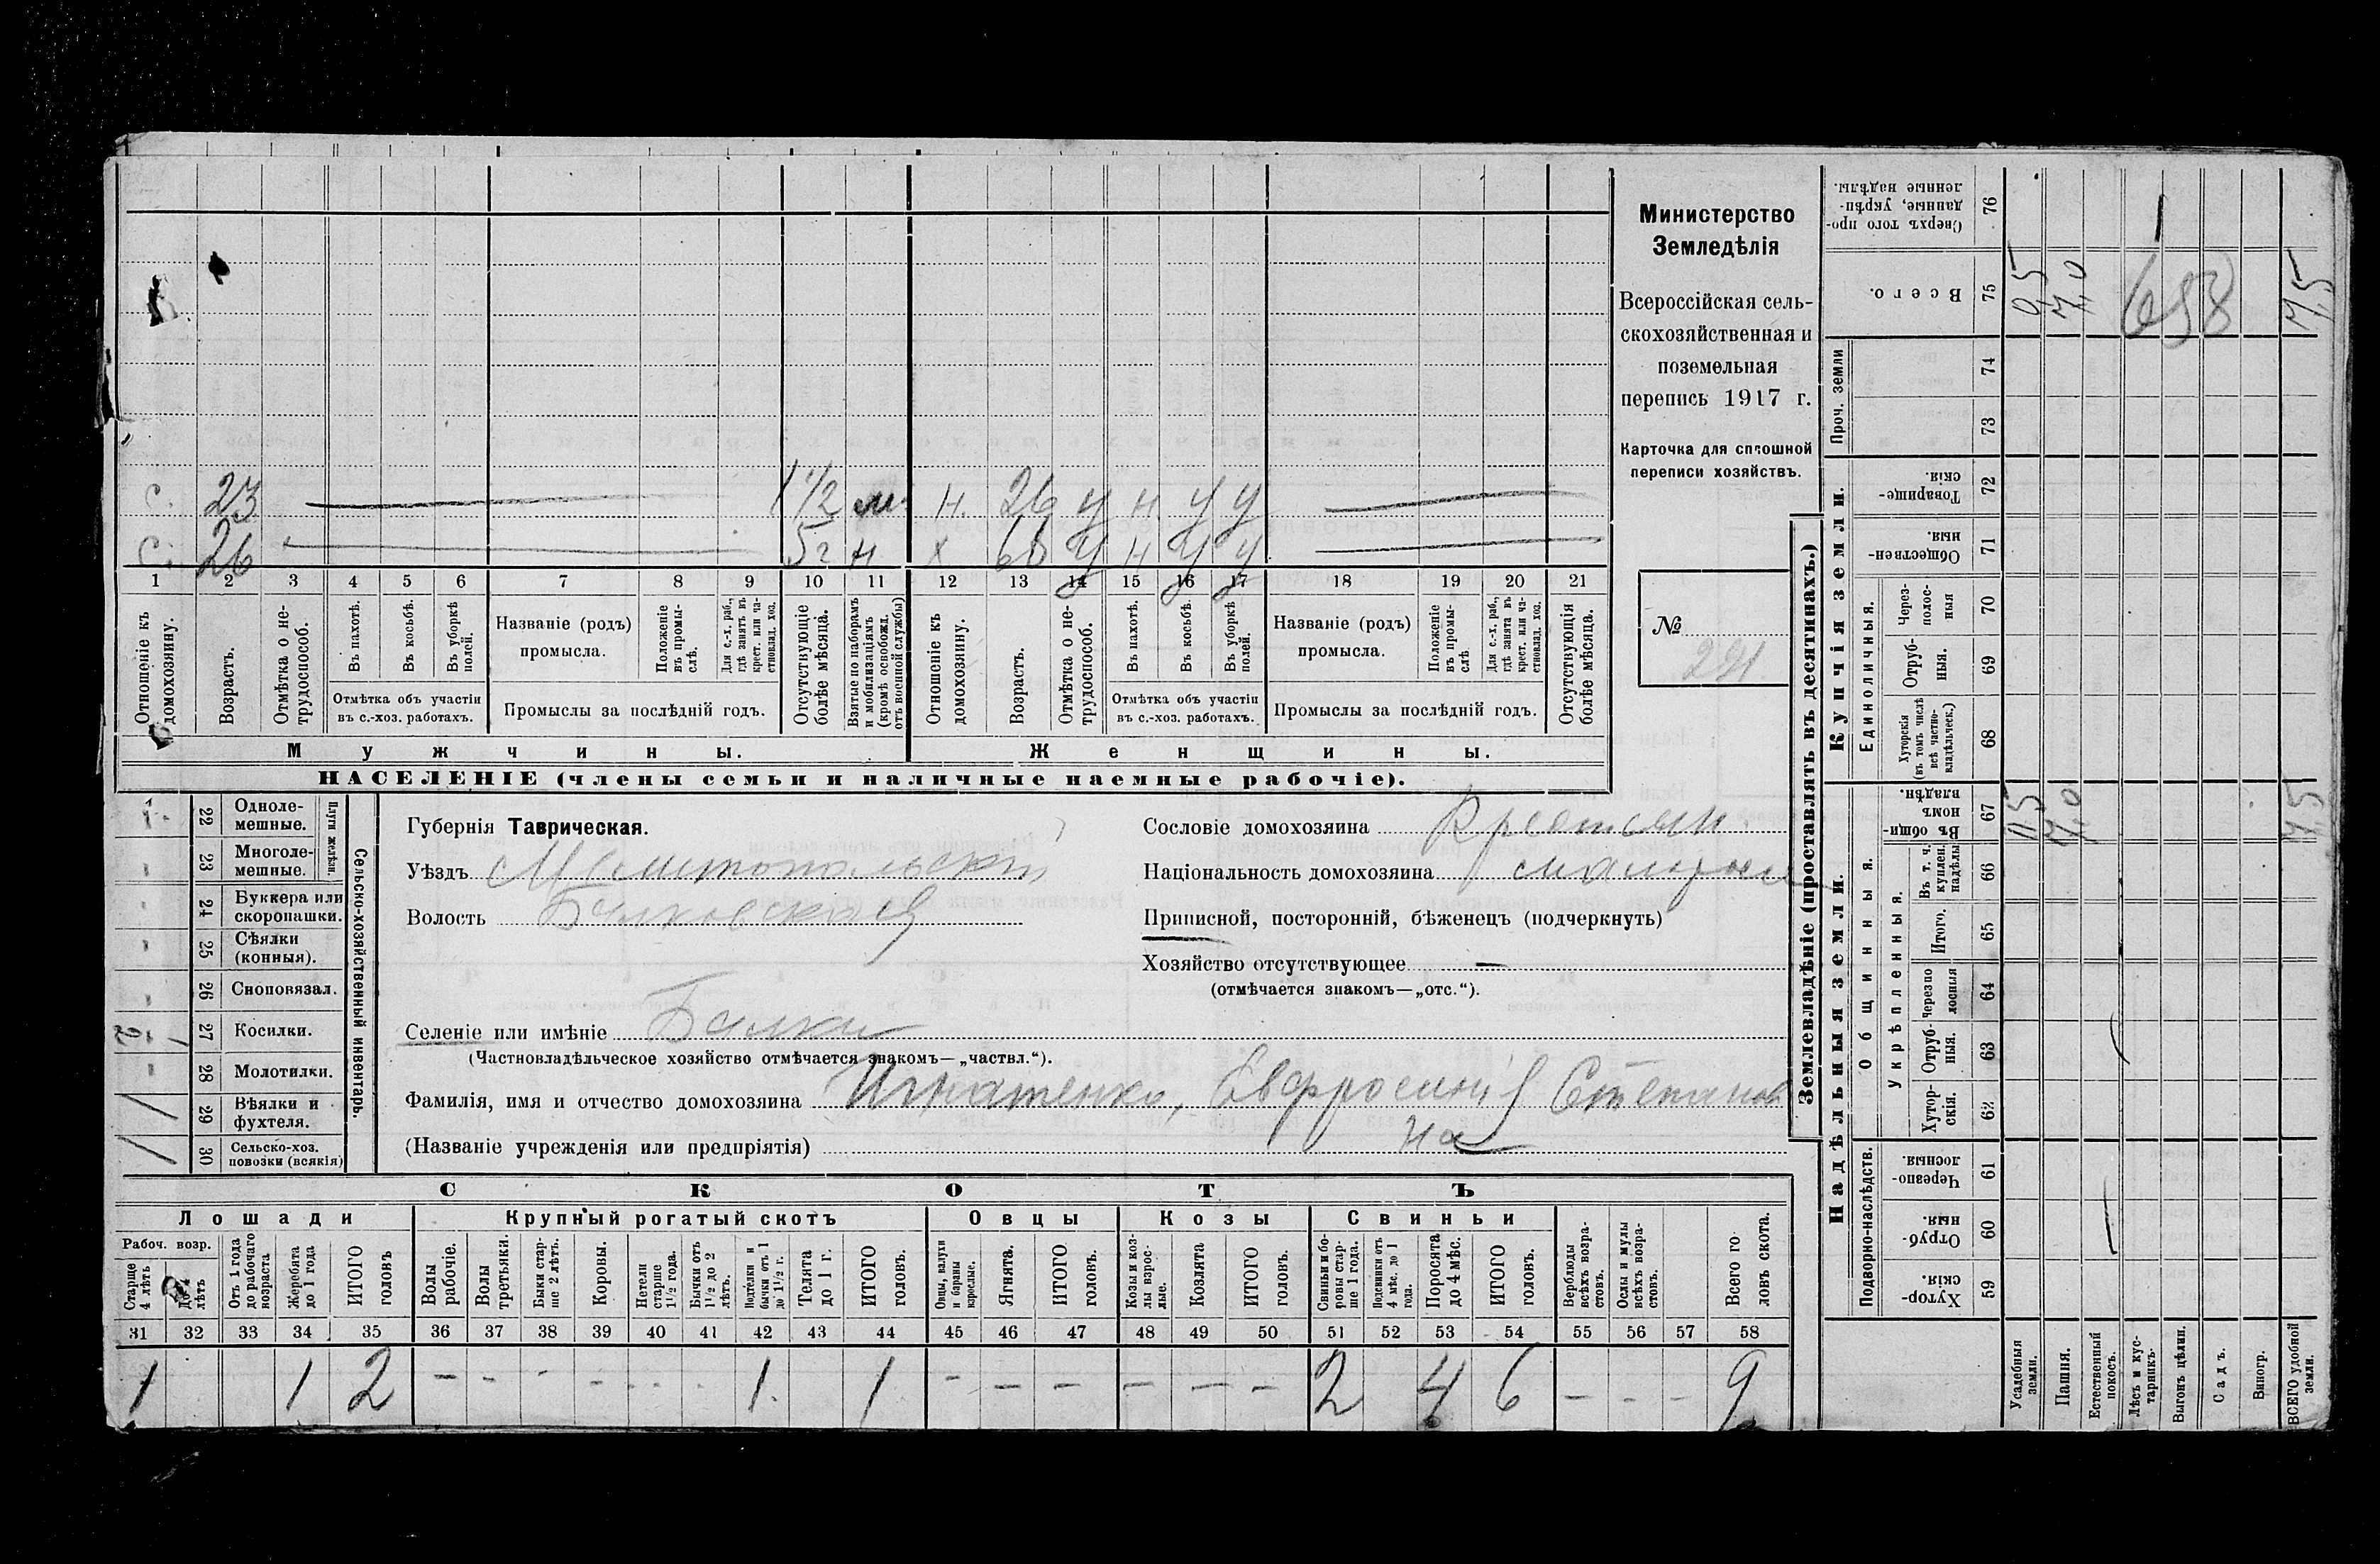 Министерство
Земледѣлія
Всероссійская сель-
скохозяйственная и
поземельная
перепись 1917 г.
Карточка для сплошной
переписи хозяйствъ.
№
221
с. 23 1 1/2 м. н. 26 у н у у
с. 26 5 г н х у н у у
1 2 3 4 5 6 7 8 9 10 11 12 13 14 15 16 17 18 19 20 21
Отношеніе къ домохозяину.
Возрастъ.
Отмѣтка о не-трудоспособ.
Въ пахотѣ.
Въ косьбѣ.
Въ уборкѣ полей.
Отмѣтка объ участіи
въ с.-хоз. работахъ.
Названіе (родъ)
промысла.
Положеніе въ промы-слѣ.
Для с.-х. раб., гдѣ занятъ въ крест. или ча-стновлад. хоз.
Промыслы за послѣдній годъ.
Отсутствующіе болѣе мѣсяца.
Взятые по наборамъ и мобилизаціямъ (кромѣ освобожд. отъ военной службы)
Отношеніе къ домохозяину.
Возрастъ.
Отмѣтка о не-трудоспособ.
Въ пахотѣ.
Въ косьбѣ.
Въ уборкѣ полей.
Отмѣтка объ участіи
въ с.-хоз. работахъ.
Названіе (родъ)
промысла.
Положеніе въ промы-слѣ
Для с.-х. раб., гдѣ занята въ крест. или ча-стновлад. хоз.
Промыслы за послѣдній годъ.
Отсутствующія болѣе мѣсяца.
Мужчины.
Женщины.
НАСЕЛЕНІЕ (члены семьи и наличные наемные рабочіе).
Сельско-хозяйственный инвентарь.
Плуги желѣзн.
22 Одноле-
мешные.
23 Многоле-
мешные.
24 Буккера или
скоропашки.
25 Сѣялки
(конныя).
26 Сноповязал.
27 Косилки.
28 Молотилки.
29 Вѣялки и
фухтеля.
30 Сельско-хоз.
повозки (всякія)
Губернія Таврическая.
Уѣздъ Мелитопольскій
Волость Балковская
Селеніе или имѣніе Балки
(Частновладѣльческое хозяйство отмѣчается знакомъ—„частвл.“).
Фамилія, имя и отчество домохозяина Игнатенко, Евфросинія Степанов
на
(Названіе учрежденія или предпріятія)
Сословіе домохозяина Крестьян.
Національность домохозяина
Приписной, посторонній, бѣженецъ (подчеркнуть)
Хозяйство отсутствующее —
(отмѣчается знакомъ—„отс.“).
СКОТЪ
Лошади
Крупный рогатый скотъ
Овцы
Козы
Свиньи
Рабоч. возр.
Старше 4 лѣтъ
До 4 лѣтъ
Отъ 1 года до рабочаго возраста
Жеребята до 1 года
ИТОГО головъ
Волы рабочіе.
Волы третьяки.
Быки стар-ше 2 лѣтъ.
Коровы.
Нетели старше 1 1/2 года.
Бычки отъ 1 1/2 до 2 лѣтъ.
Подтелки и бычки отъ 1 до 1 1/2 г.
Телята до 1 г.
ИТОГО головъ.
Овцы, валухи и бараны взрослые.
Ягнята.
ИТОГО головъ.
Козы и коз-лы взрос-лые.
Козлята
ИТОГО головъ.
Свиньи и бо-ровы стар-ше 1 года.
Подсвинки отъ 4 мѣс. до 1 года.
Поросята до 4 мѣс.
ИТОГО головъ.
Верблюды всѣхъ возра-стовъ.
Ослы и мулы всѣхъ возра-стовъ.
Всего го ловъ скота.
31 32 33 34 35 36 37 38 39 40 41 42 43 44 45 46 47 48 49 50 51 52 53 54 55 56 57 58
1 1 2 - - - - - - 1 1 - - - - - - 2 4 6 - - - 9
Землевладѣніе (проставлять въ десятинахъ.)
Надѣльныя земли.
Купчія земли.
Проч. земли
Подворно-наслѣдств.
Общинныя.
Укрѣпленныя.
Единоличныя.
Хутор-скія. 59
Отруб-ныя. 60
Черезпо-лосныя. 61
Хутор-скія. 62
Отруб-ныя. 63
Черезпо лосныя 64
Итого. 65
Въ т. ч. куплен. надѣлы 66
Въ общи-номъ владѣн. 67
Хуторскія (въ томъ числѣ всѣ частно-владѣльческ.) 68
Отруб-ныя. 69
Через-полос-ныя 70
Обществен-ныя. 71
Товарище-скія. 72
73
74
Всего. 75
Сверхъ того про-данные, укрѣп-ленные надѣлы. 76
Усадебныя земли.
Пашня.
Естественный покосъ.
Лѣсъ и кус-тарникъ.
Выгонъ цѣлин.
Садъ.
Виногр.
ВСЕГО удобной земли.
0,5 7,0 7,5
0,5 7,0 7,5
658